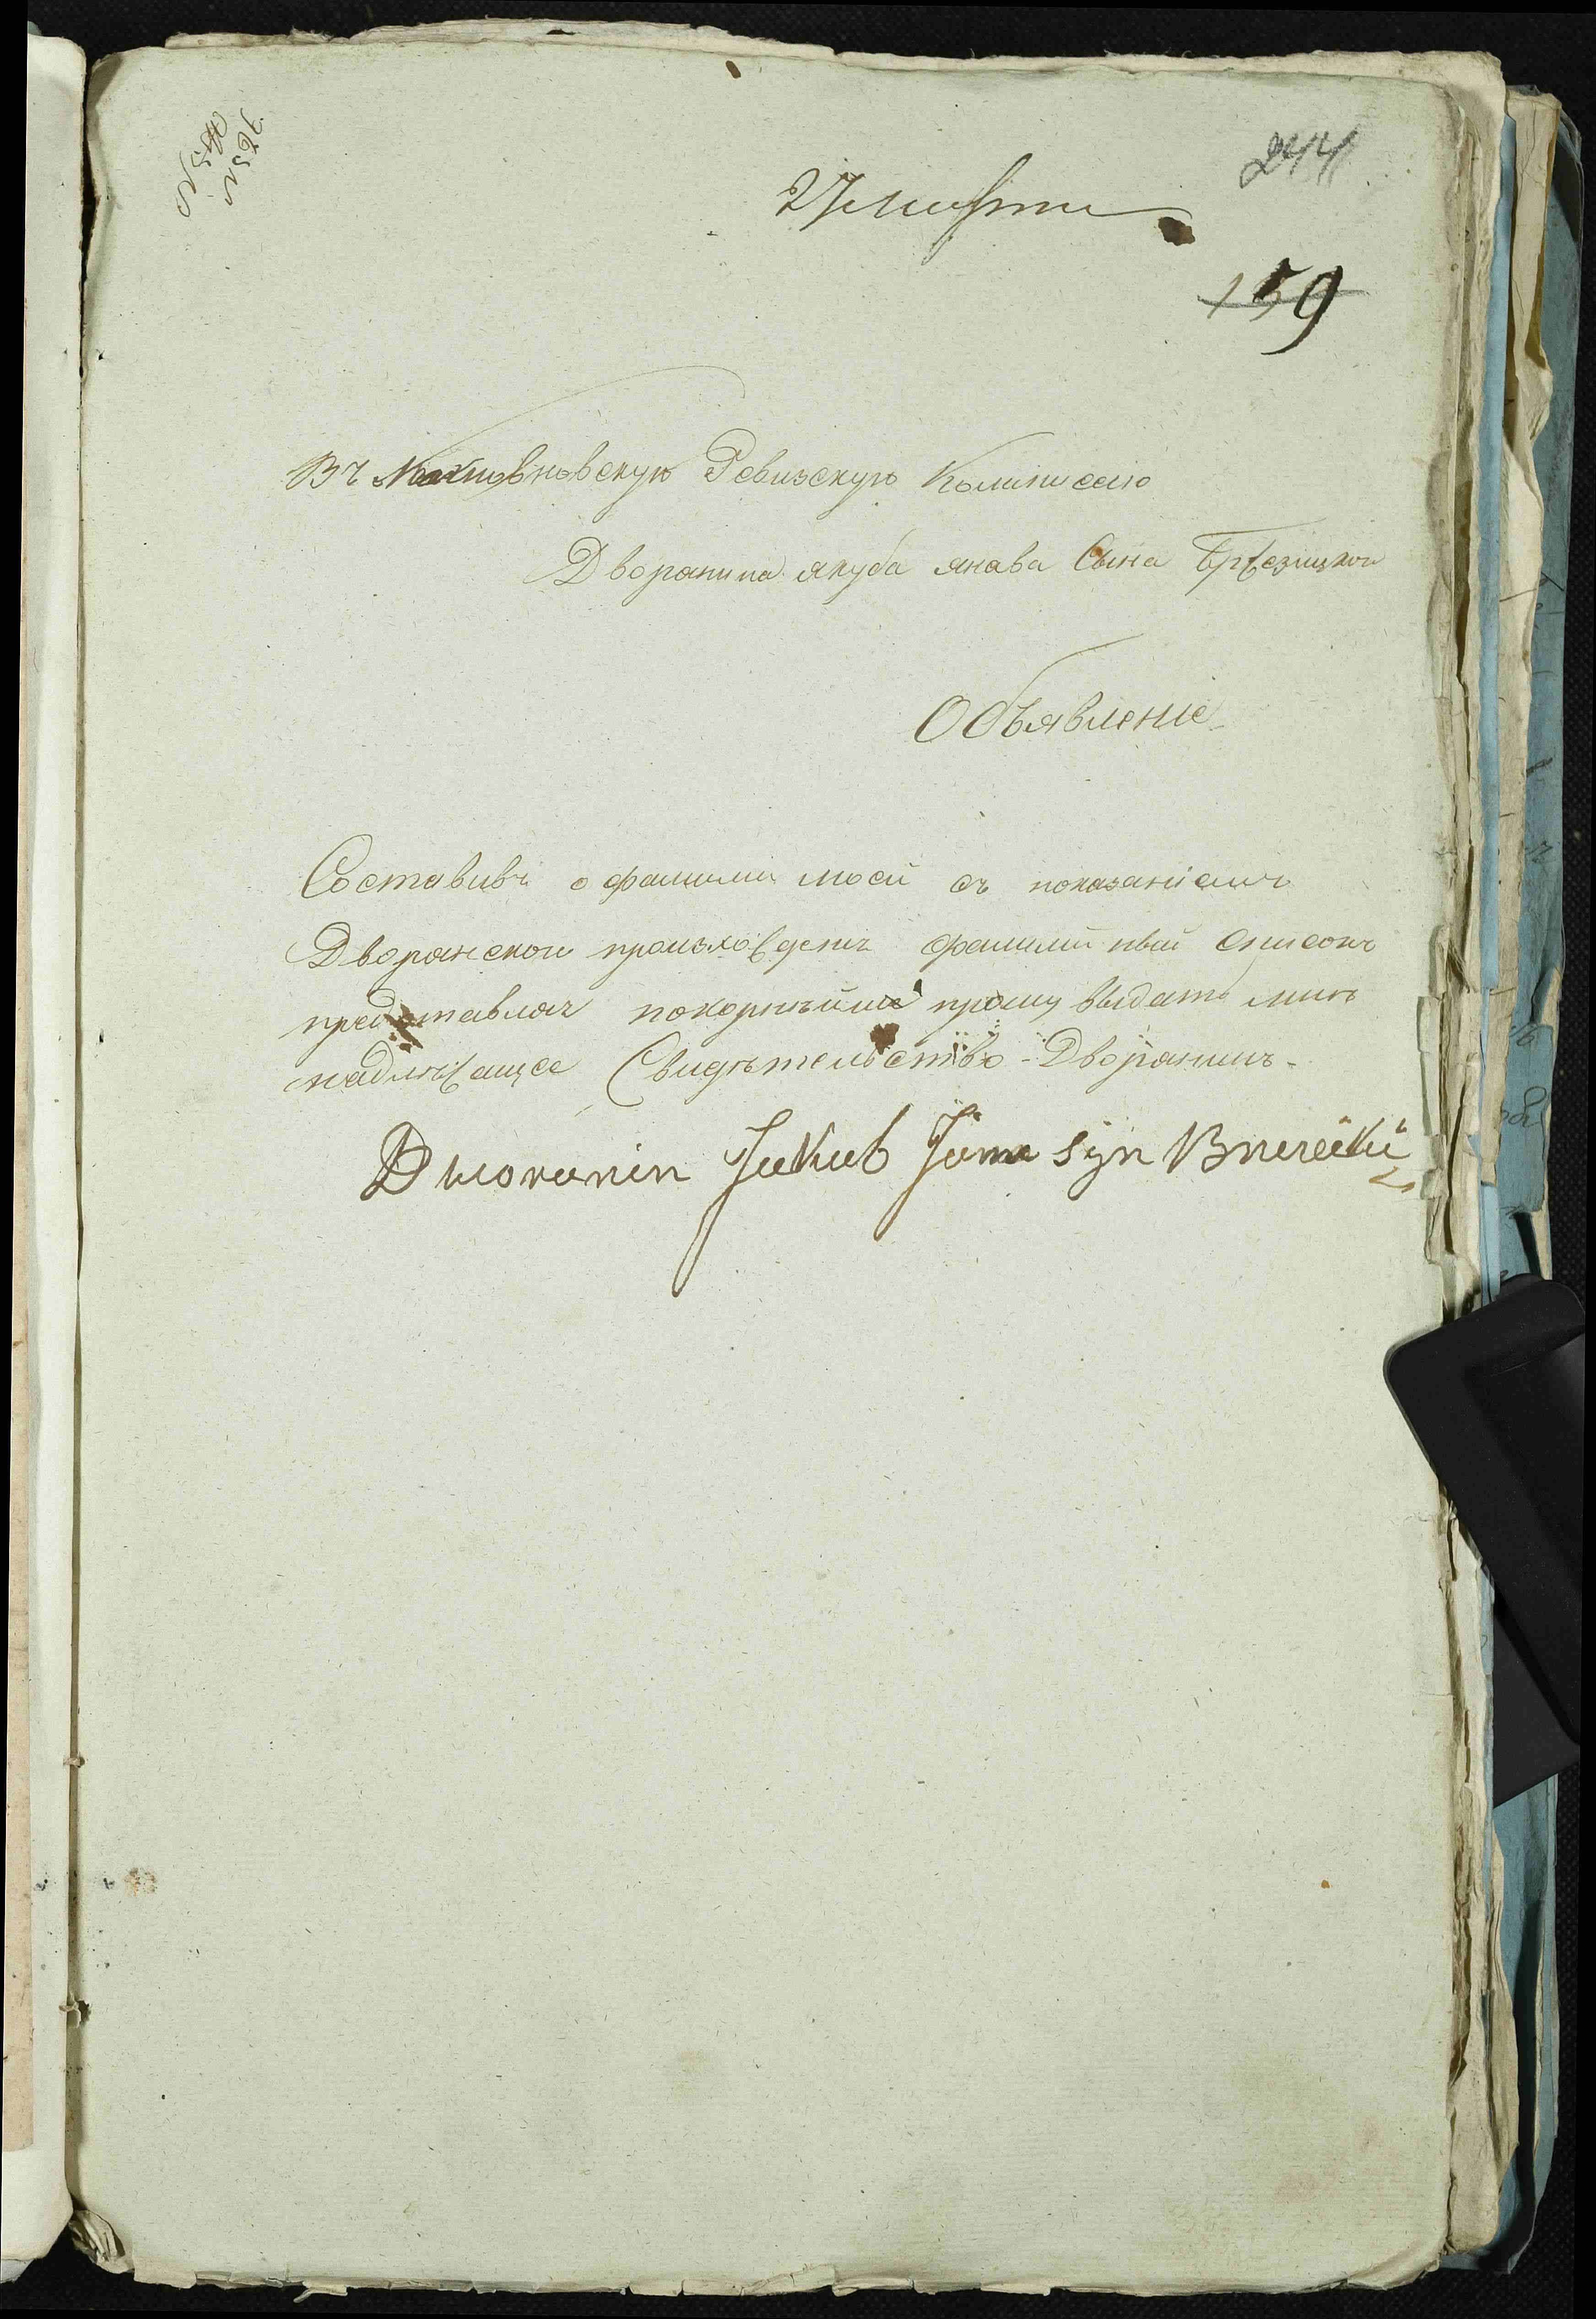 244
27 марта
159
Въ Махновскую Ревизскую Коммиссію
Дворянина якуба янава Сына Бржезицкои
Объявленіе
Составивъ о фамиліи моей съ показаніемъ
Дворянскои происхожденъ фамилійный списокъ
представляя покорнѣйше прошу выдать мнѣ
надлежащее Свидѣтельство - Дворянинъ -
Dworanin Jakub Jana syn